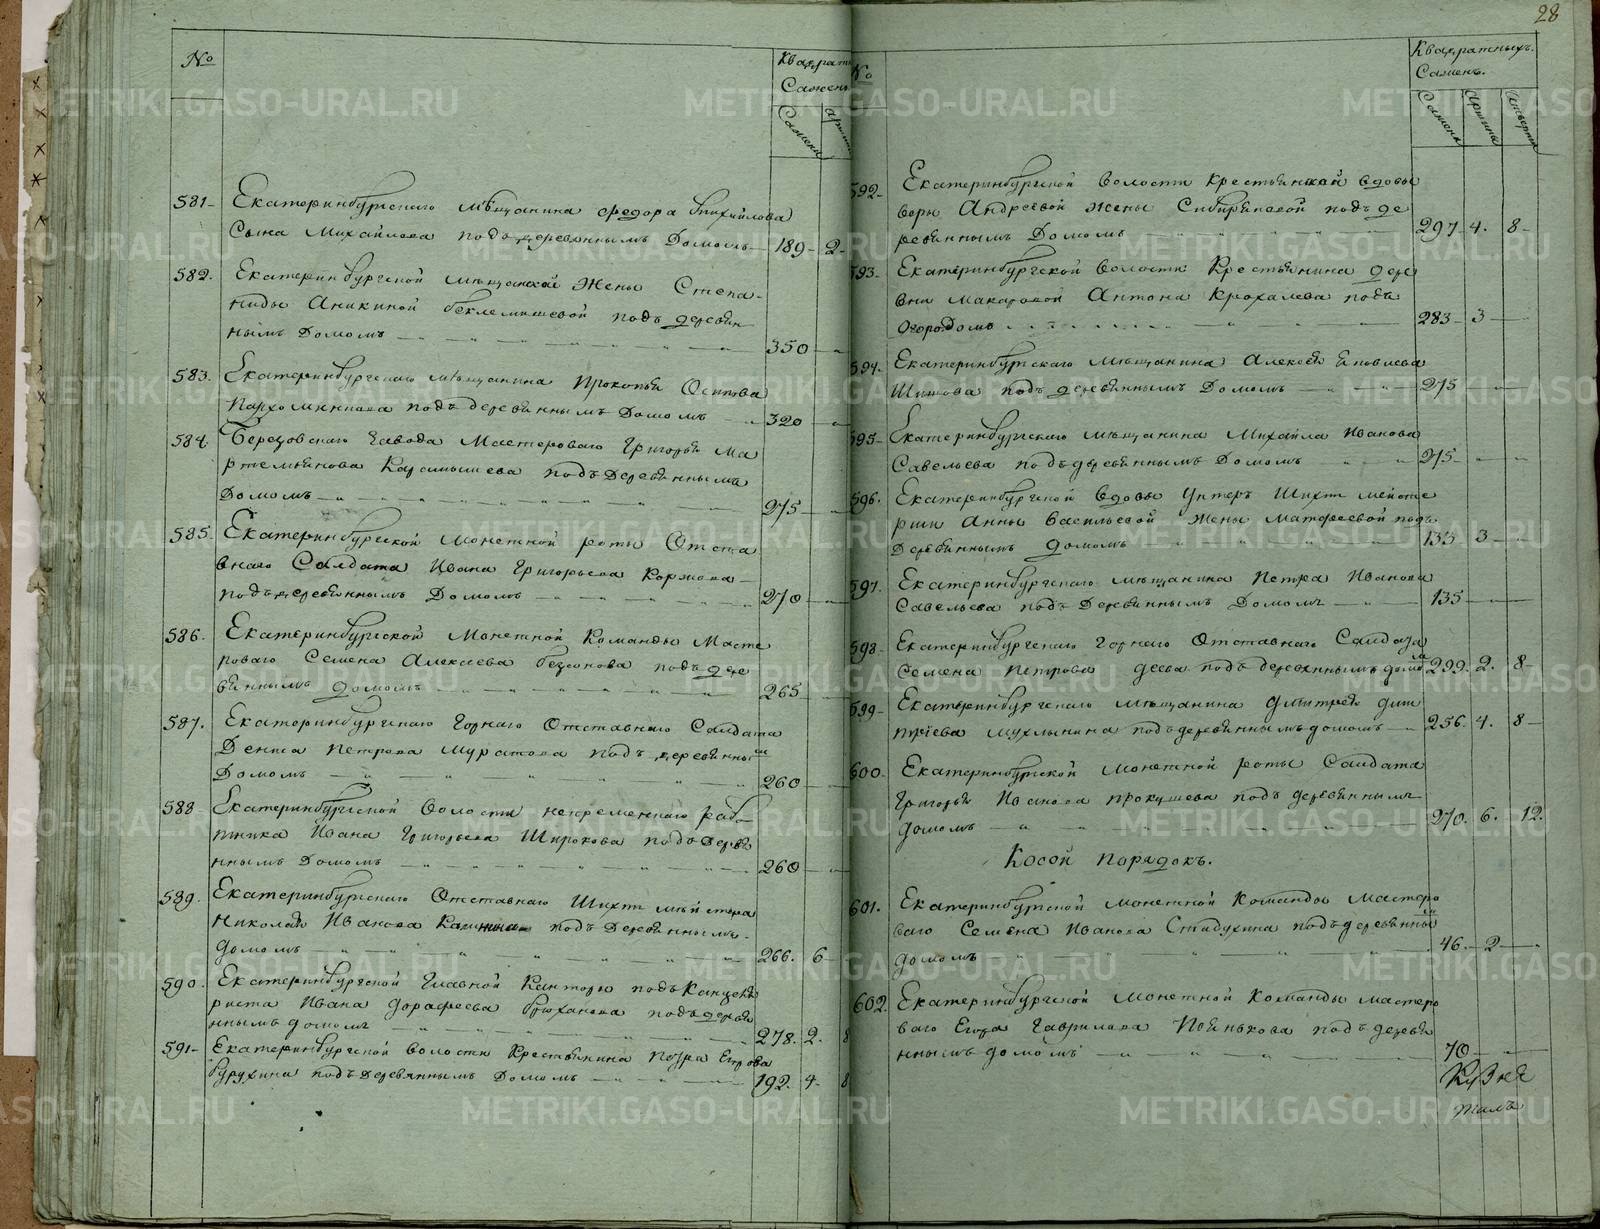 28
№
Квадратн
Сажен
Сажени
Арши
581- Екатеринбургскаго мѣщанина Федора Михайлова
Сына Михайлова подъ деревяннымъ Домомъ 189 - 2 -
582. Екатеринбургской мѣщанской Жены Степа-
ниды Аникиной беклемишевой подъ деревян
нымъ Домомъ 350
583. Екатеринбургскаго мѣщанина Прокопья Осипова
Пархоменкова подъ деревяннымъ Домомъ 320
584. Березовскаго Завода Мастероваго Григорья Ма
ртемьянова Карамышева подъ Деревяннымъ
Домомъ 275
585. Екатеринбургской Монетной роты Отста
внаго Салдата Ивана Григорьева Коржова
подъ деревяннымъ Домомъ 270
586. Екатеринбургской Монетной Команды Масте
роваго Семена Алексеева безсонова подъ дере
вяннымъ Домомъ 265
587. Екатеринбургскаго Горнаго Отставнаго Салдата
Дениса Петрова Муратова подъ деревянны мъ
Домомъ 260
588. Екатеринбургской Волости непременнаго рабо
тника Ивана Григорьева Широкова подъ Деревя
ннымъ Домомъ 260
589. Екатеринбургскаго Отставнаго Шихтмейстера
Николая Иванова подъ Деревяннымъ
Домомъ 266. 6
590. Екатеринбургской Главной Канторы подъ Канцеля
риста Ивана Дорофеева брюханова подъ деревя
ннымъ домомъ 278. 2. 8
591- Екатеринбургской волости Крестьянина Петра Егорова
бурухина подъ Деревяннымъ Домомъ 192. 4 8
№
Квадратныхъ
Саженъ.
Сажени
Аршины
Четверти
592- Екатеринбургской Волости Крестьянской вдовы
веры Андреевой Жены Сибиряковой подъ де
ревяннымъ Домомъ 297 4. 8 -
593- Екатеринбургской Волости Крестьянина дере
вни Макаровой Антона Крохалева подъ
Огородомъ 283 - 3 -
594. Екатеринбургскаго мѣщанина Алексея Яковлева
Шитова подъ деревяннымъ Домомъ 275
595- Екатеринбургскаго мѣщанина Михайла Иванова
Савельева подъ деревяннымъ Домомъ 275
596. Екатеринбургской Вдовы Унтеръ Шихтмейсте
рши Анны Васильевой Жены Матфеевой подъ
Деревяннымъ Домомъ 133 3
597. Екатеринбургскаго мѣщанина Петра Иванова
Савельева подъ Деревяннымъ Домомъ 135
598- Екатеринбургскаго Горнаго Отставнаго Салдата
Семена Петрова деева подъ деревяннымъ домо мъ 299. 2. 8
599- Екатеринбургскаго мѣщанина Дмитрея Дми
триева Мухлынина подъ деревяннымъ домомъ 256. 4. 8
600. Екатеринбургской Монетной роты Салдата
Григорья Иванова прокушева подъ деревяннымъ
домомъ 270. 6. 12.
Косой порядокъ.
601. Екатеринбургской монетной Команды Мастеро
ваго Семена Иванова Стадухина подъ деревянны мъ
домомъ 46. 2
602. Екатеринбургской Монетной Команды мастеро
ваго Егора Гаврилова Пеянкова подъ деревя
ннымъ домомъ 70